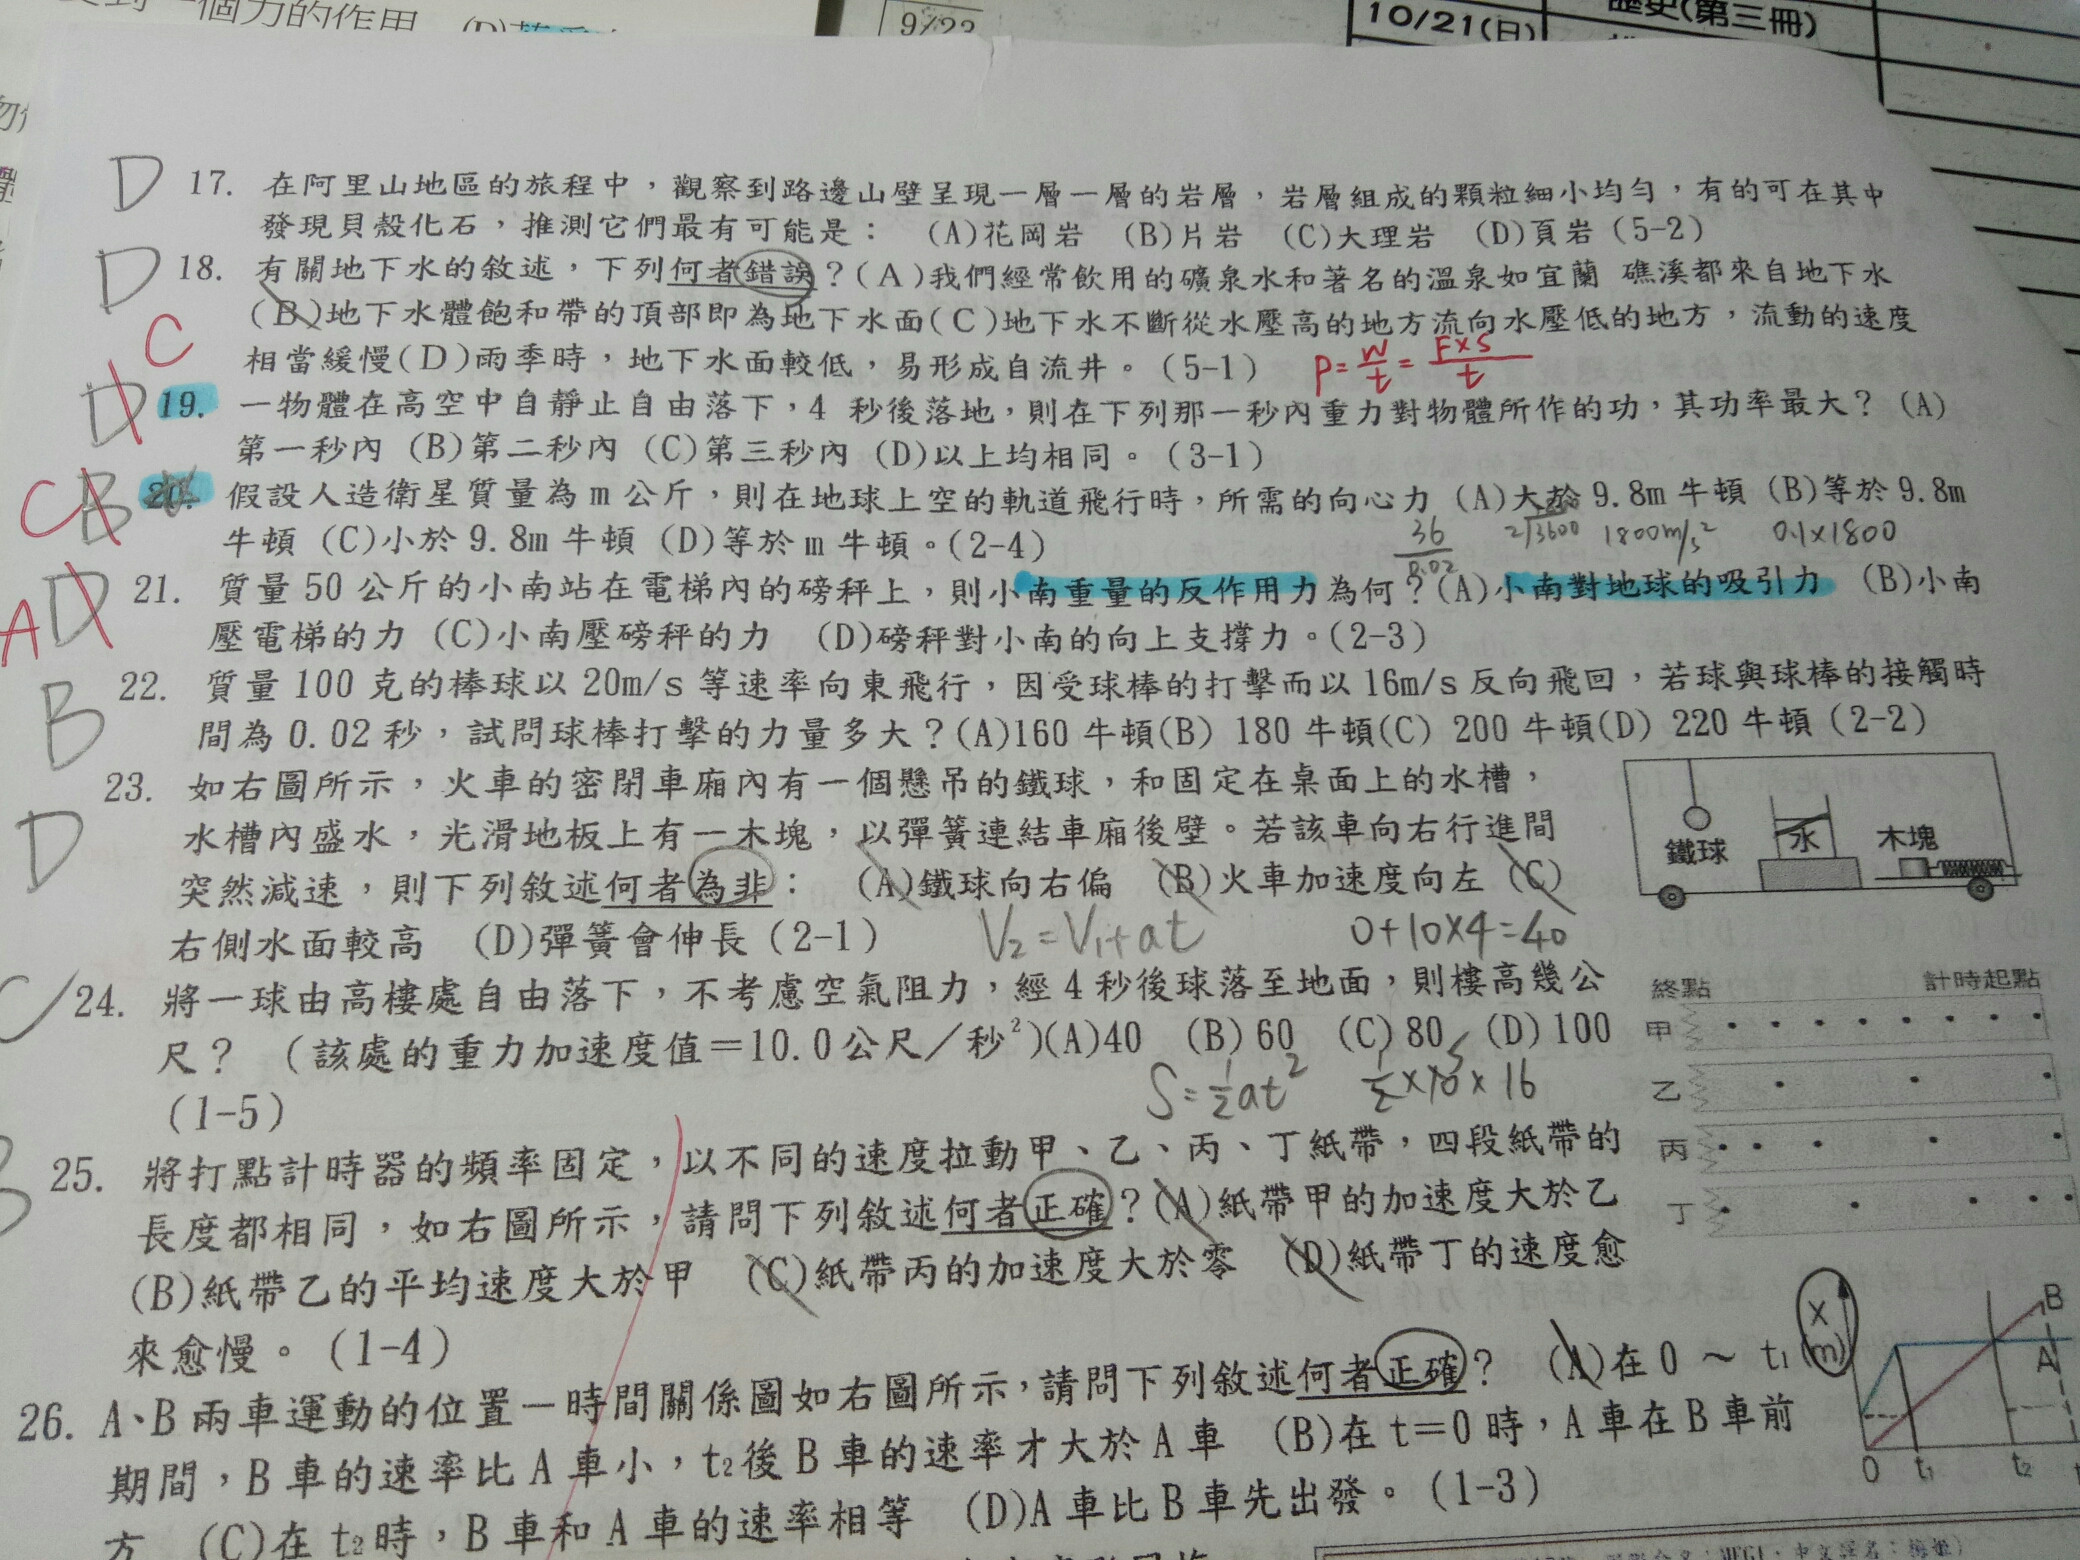 9/23
10/21(日)
歷史(第三冊)
D 17. 在阿里山地區的旅程中，觀察到路邊山壁呈現一層一層的岩層，岩層組成的顆粒細小均勻，有的可在其中
發現貝殼化石，推測它們最有可能是： (A)花岡岩 (B)片岩 (C)大理岩 (D)頁岩(5-2)
D 18. 有關地下水的敘述，下列何者錯誤？(A)我們經常飲用的礦泉水和著名的溫泉如宜蘭 礁溪都來自地下水
(B)地下水體飽和帶的頂部即為地下水面(C)地下水不斷從水壓高的地方流向水壓低的地方，流動的速度
相當緩慢(D)雨季時，地下水面較低，易形成自流井。(5-1) P=W/t=F×S/t
D C 19. 一物體在高空中自靜止自由落下，4 秒後落地，則在下列那一秒內重力對物體所作的功，其功率最大？ (A)
第一秒內 (B)第二秒內 (C)第三秒內 (D)以上均相同。(3-1)
C B 20. 假設人造衛星質量為 m 公斤，則在地球上空的軌道飛行時，所需的向心力 (A)大於 9.8m 牛頓 (B)等於 9.8m
牛頓 (C)小於 9.8m 牛頓 (D)等於 m 牛頓。(2-4)
36/0.02 2)3600 1800m/s² 0.1×1800
A D 21. 質量 50 公斤的小南站在電梯內的磅秤上，則小南重量的反作用力為何？(A)小南對地球的吸引力 (B)小南
壓電梯的力 (C)小南壓磅秤的力 (D)磅秤對小南的向上支撐力。(2-3)
B 22. 質量 100 克的棒球以 20m/s 等速率向東飛行，因受球棒的打擊而以 16m/s 反向飛回，若球與球棒的接觸時
間為 0.02 秒，試問球棒打擊的力量多大？(A)160 牛頓(B) 180 牛頓(C) 200 牛頓(D) 220 牛頓 (2-2)
D 23. 如右圖所示，火車的密閉車廂內有一個懸吊的鐵球，和固定在桌面上的水槽，
水槽內盛水，光滑地板上有一木塊，以彈簧連結車廂後壁。若該車向右行進間
突然減速，則下列敘述何者為非： (A)鐵球向右偏 (B)火車加速度向左 (C)
右側水面較高 (D)彈簧會伸長(2-1)
鐵球 水 木塊
V₂=V₁+at 0+10×4=40
C 24. 將一球由高樓處自由落下，不考慮空氣阻力，經 4 秒後球落至地面，則樓高幾公
尺？ (該處的重力加速度值＝10.0公尺／秒²)(A)40 (B)60 (C)80 (D)100
(1-5)
S=½at² ½×10×16 5
終點 計時起點
甲
乙
丙
丁
B 25. 將打點計時器的頻率固定，以不同的速度拉動甲、乙、丙、丁紙帶，四段紙帶的
長度都相同，如右圖所示，請問下列敘述何者正確？(A)紙帶甲的加速度大於乙
(B)紙帶乙的平均速度大於甲 (C)紙帶丙的加速度大於零 (D)紙帶丁的速度愈
來愈慢。(1-4)
26. A、B 兩車運動的位置－時間關係圖如右圖所示，請問下列敘述何者正確？ (A)在 0 ～ t₁
期間，B 車的速率比 A 車小，t₂後 B 車的速率才大於 A 車 (B)在 t＝0 時，A 車在 B 車前
方 (C)在 t₂時，B 車和 A 車的速率相等 (D)A 車比 B 車先出發。(1-3)
X
(m)
B
A
0 t₁ t₂